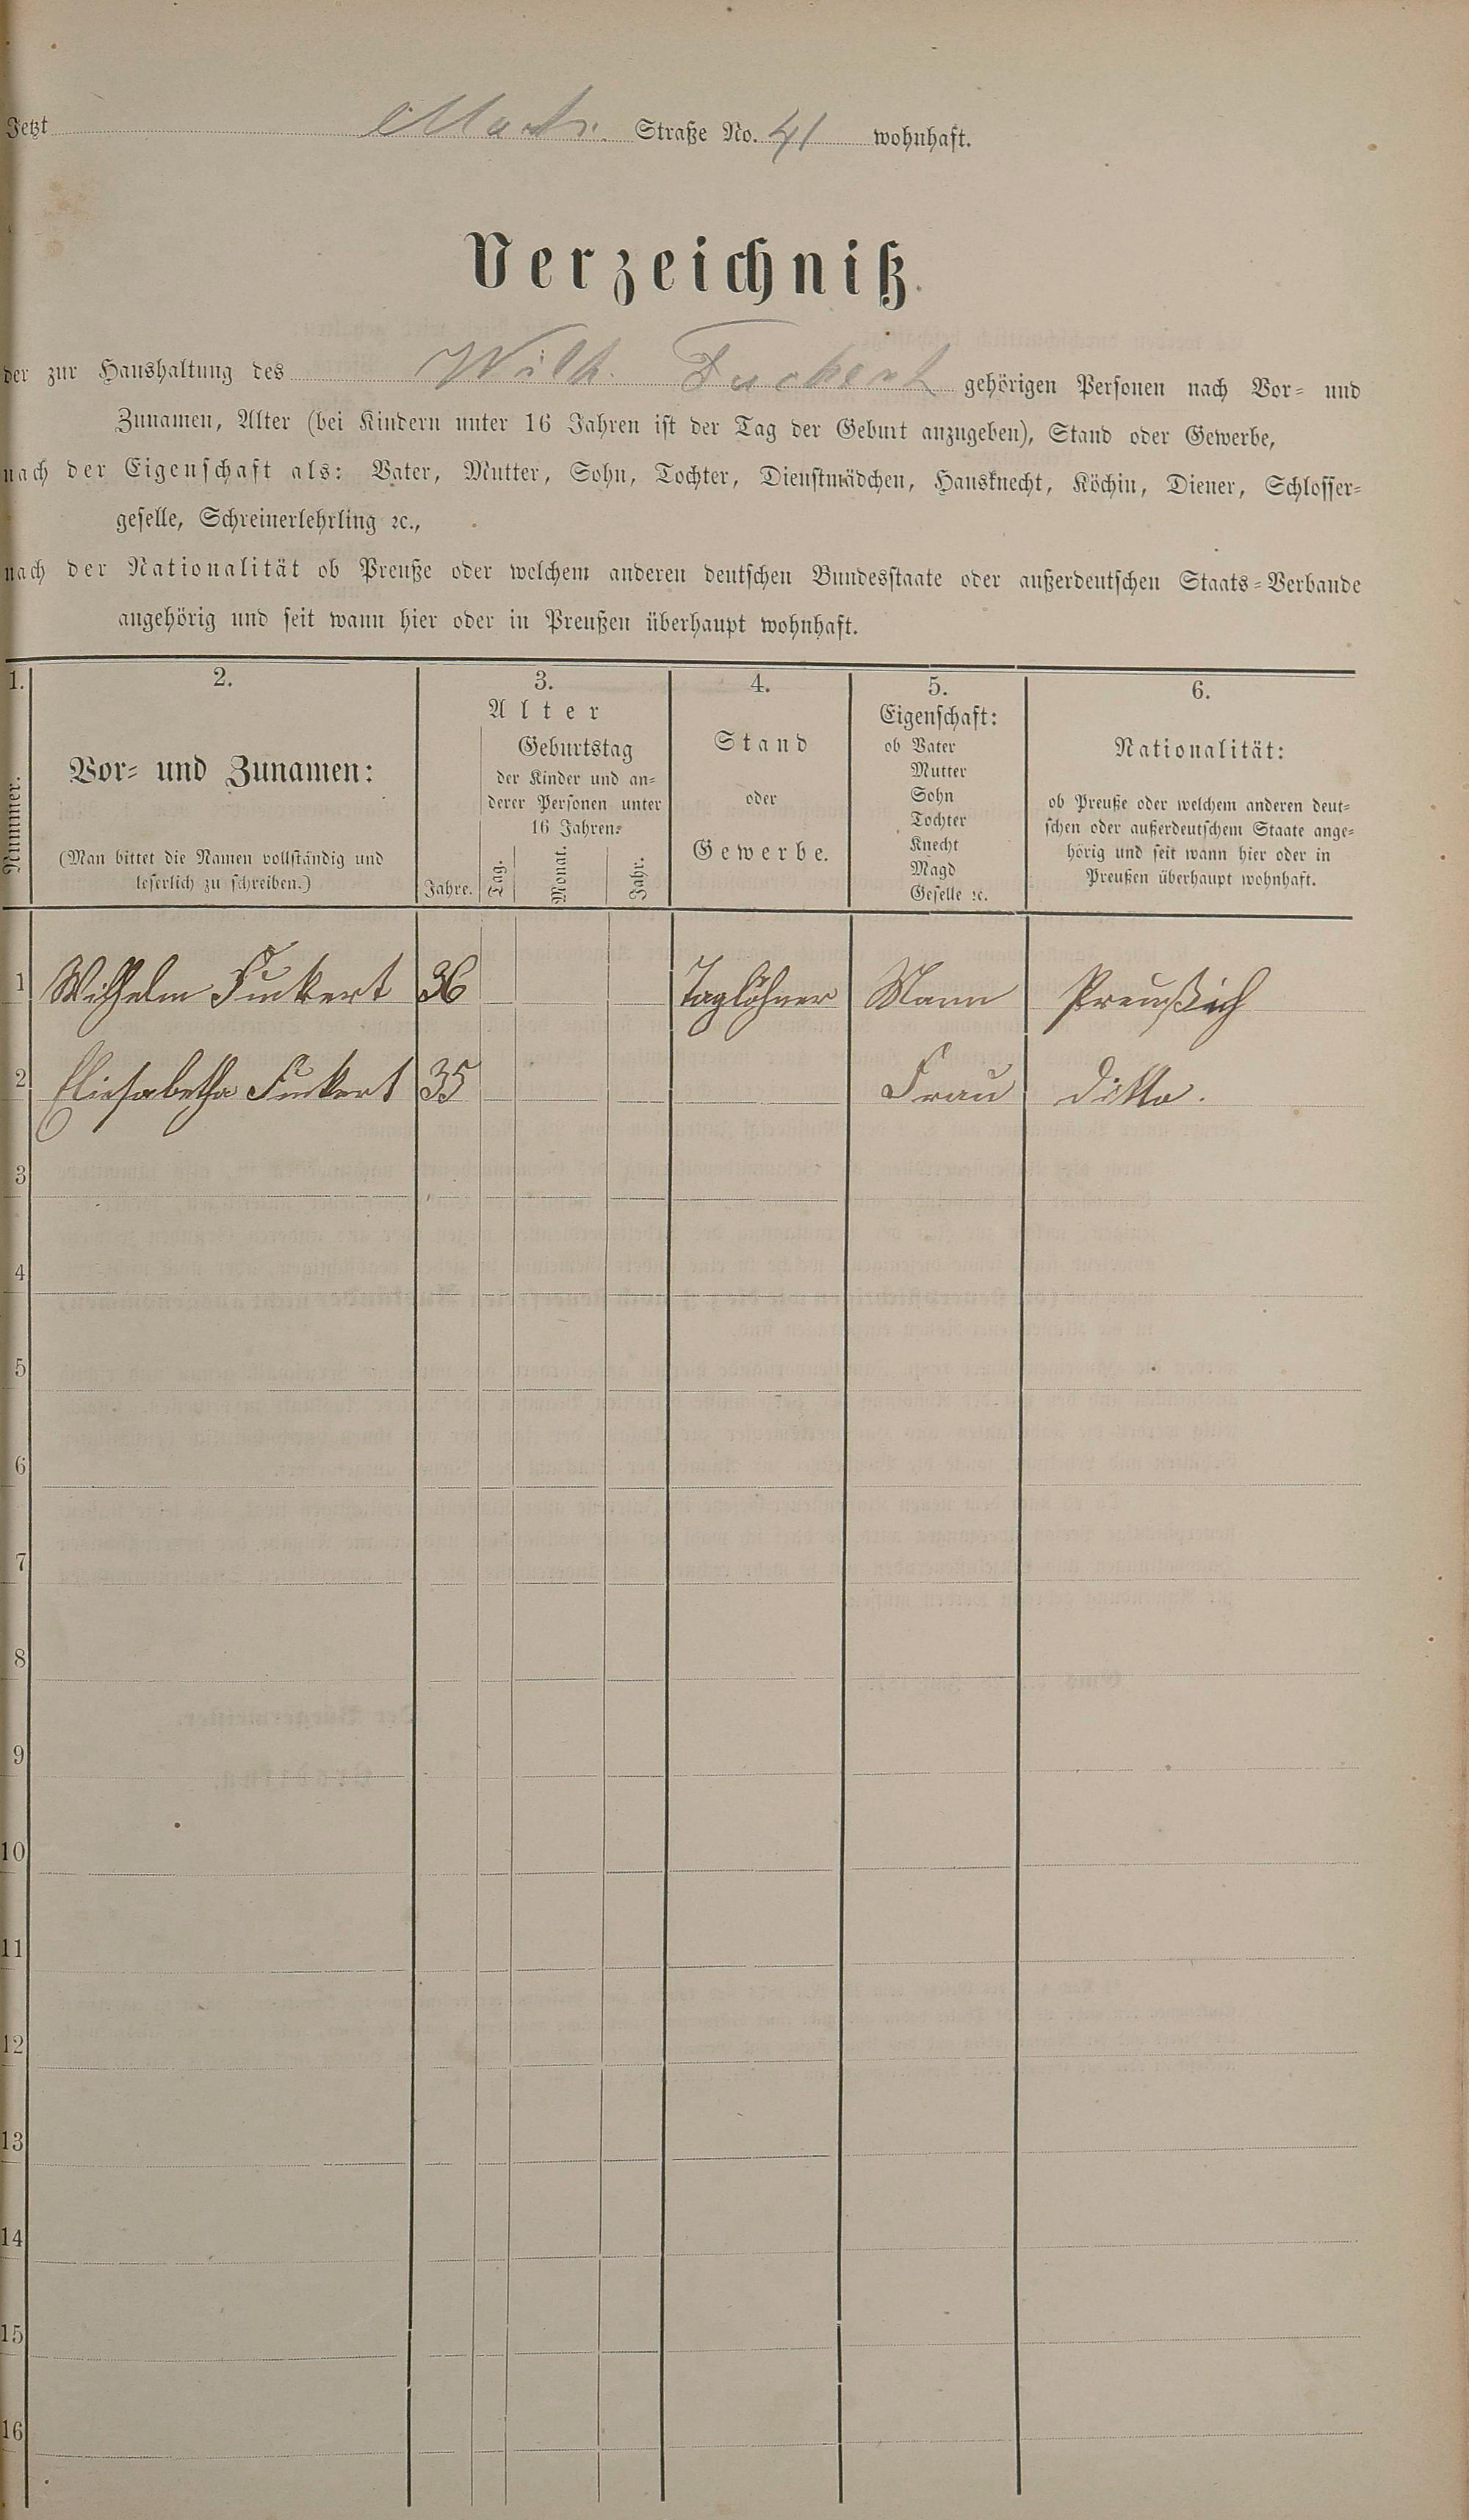 Jetzt Markt. Straße No. 41 wohnhaft.
Verzeichniß
der zur Haushaltung des Wilh. Fuckert gehörigen Personen nach Vor- und
Zunamen, Alter (bei Kindern unter 16 Jahren ist der Tag der Geburt anzugeben), Stand oder Gewerbe,
nach der Eigenschaft als: Vater, Mutter, Sohn, Tochter, Dienstmädchen, Hausknecht, Köchin, Diener, Schlosser-
geselle, Schreinerlehrling ꝛc.,
nach der Nationalität ob Preuße oder welchem anderen deutschen Bundesstaate oder außerdeutschen Staats-Verbande
angehörig und seit wann hier oder in Preußen überhaupt wohnhaft.
1. 2. 3. 4. 5. 6.
Nummer.
Vor- und Zunamen:
(Man bittet die Namen vollständig und
leserlich zu schreiben.)
Alter
Geburtstag
der Kinder und an-
derer Personen unter
16 Jahren:
Jahre. Tag. Monat. Jahr.
Stand
oder
Gewerbe.
Eigenschaft:
ob Vater
Mutter
Sohn
Tochter
Knecht
Magd
Geselle ꝛc.
Nationalität:
ob Preuße oder welchem anderen deut-
schen oder außerdeutschem Staate ange-
hörig und seit wann hier oder in
Preußen überhaupt wohnhaft.
1 Wilhelm Fuckert 36 Taglöhner Mann Preußich
2 Eliesabetha Fuckert 35 Frau ditto.
3
4
5
6
7
8
9
10
11
12
13
14
15
16